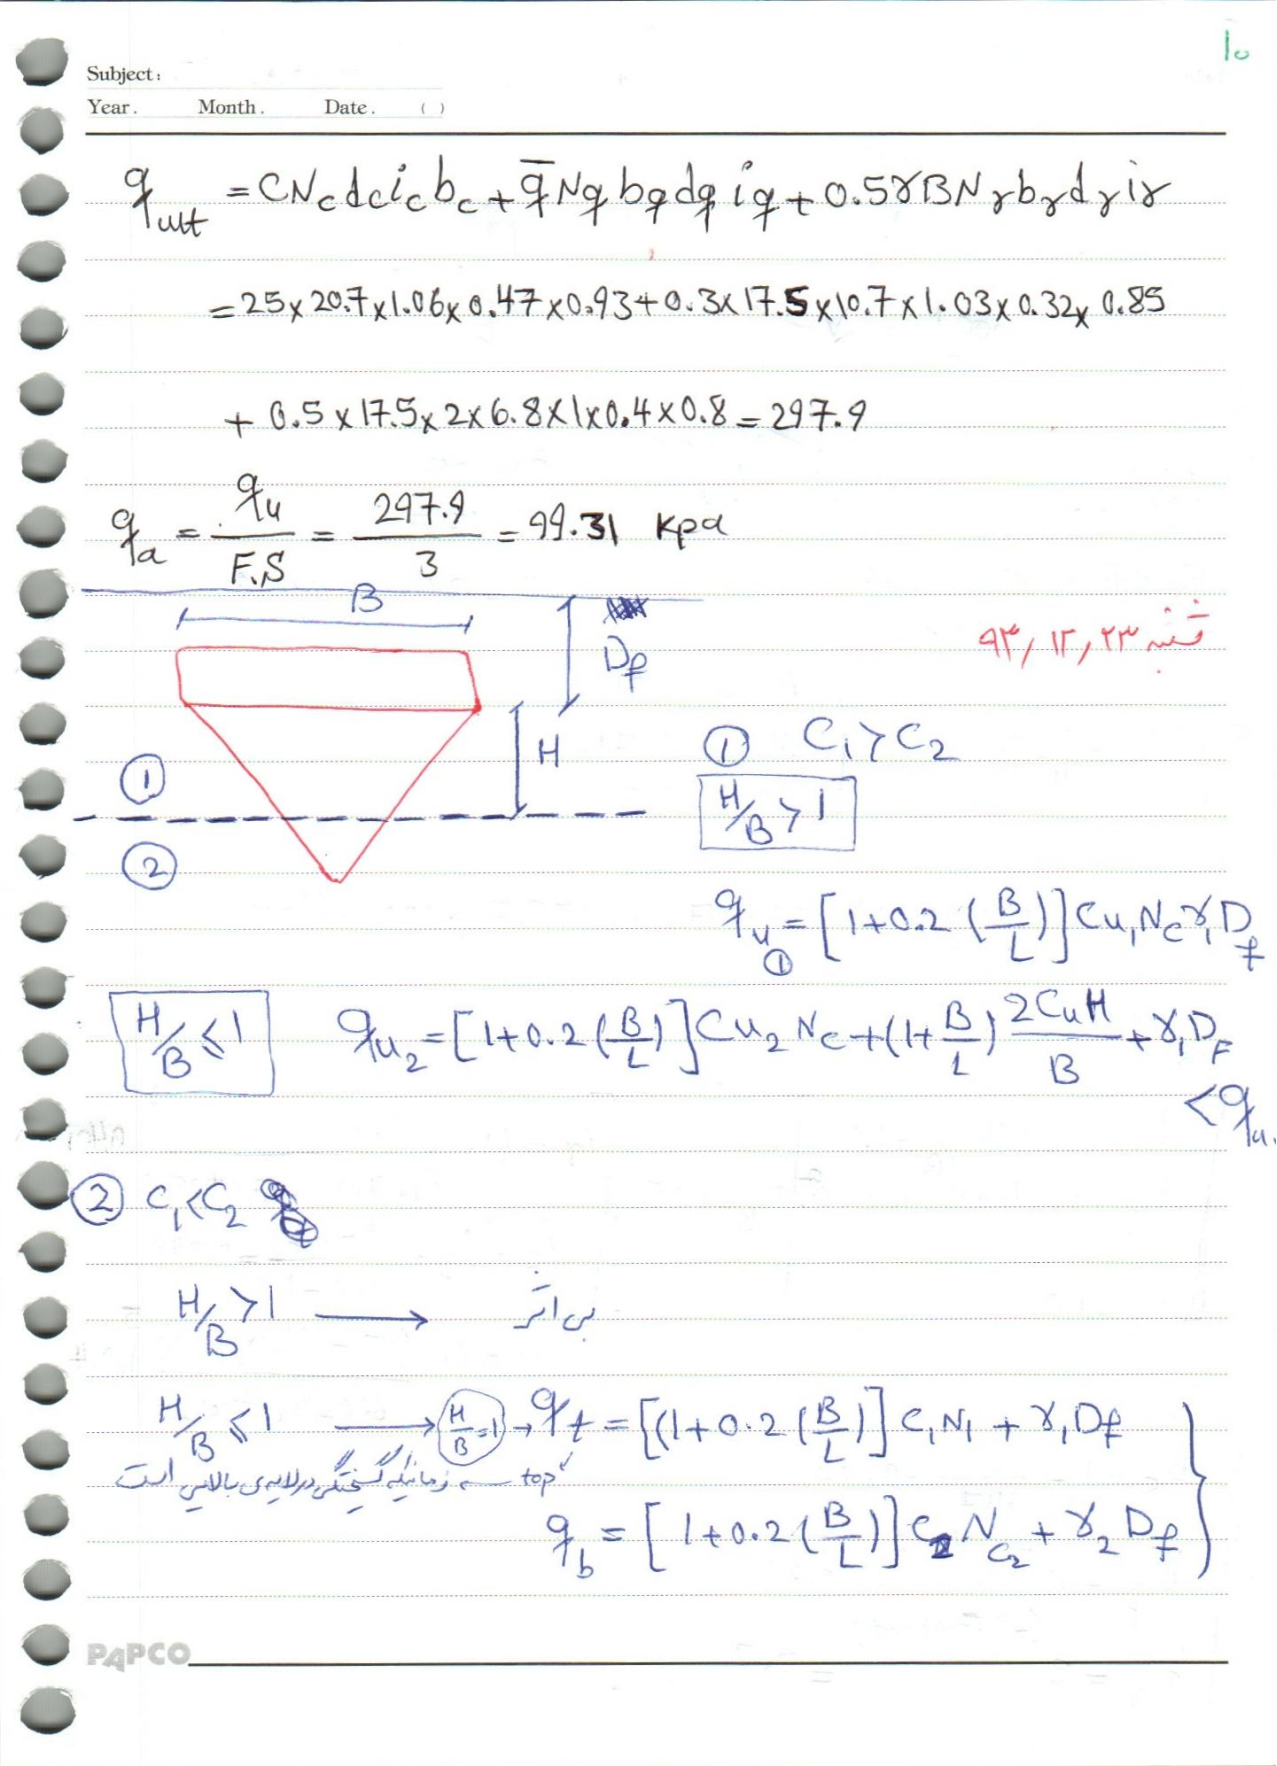 ۱۰
Subject:
Year. Month. Date. ( )
qult = CNcdcicbc + q̄Nqbqdqiq + 0.5γBNγbγdγiγ
= 25×20.7×1.06×0.47×0.93+0.3×17.5×10.7×1.03×0.32×0.85
+ 0.5×17.5×2×6.8×1×0.4×0.8=297.9
qa = qu/F.S = 297.9/3 = 99.31 kpa
B
Df
شنبه ۹۳,۱۲,۲۳
H
① C1>C2
①
H/B > 1
②
qu① = [1+0.2(B/L)]Cu1Ncγ1Df
H/B ≤ 1 qu2 = [1+0.2(B/L)]Cu2Nc+(1+B/L)2CuH/B + γ1DF
<qu.
② C1<C2
H/B >1 → بی اثر
H/B ≤ 1 → H/B=1 → qt = [(1+0.2(B/L)]C1N1 + γ1Df
top → زمانیکه گسیختگی در لایه‌ی بالایی است
qb = [1+0.2(B/L)]C2Nc2 + γ2Df
PAPCO